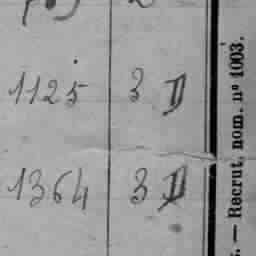 1125 3 D
1364 3 D
. — Recrut. nom. nº 1003.